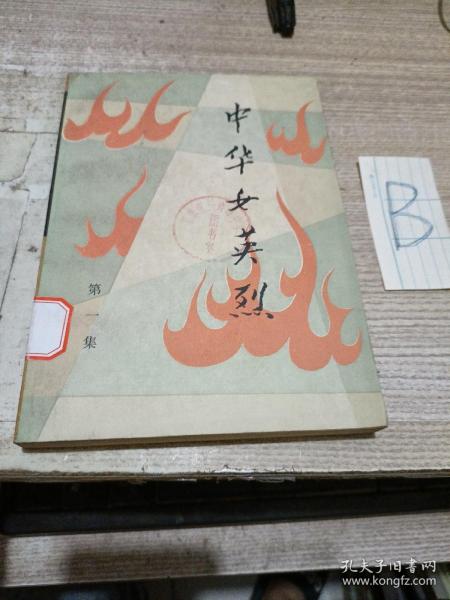 中华女英烈
第一集
B
孔夫子旧书网
www.kongfz.com